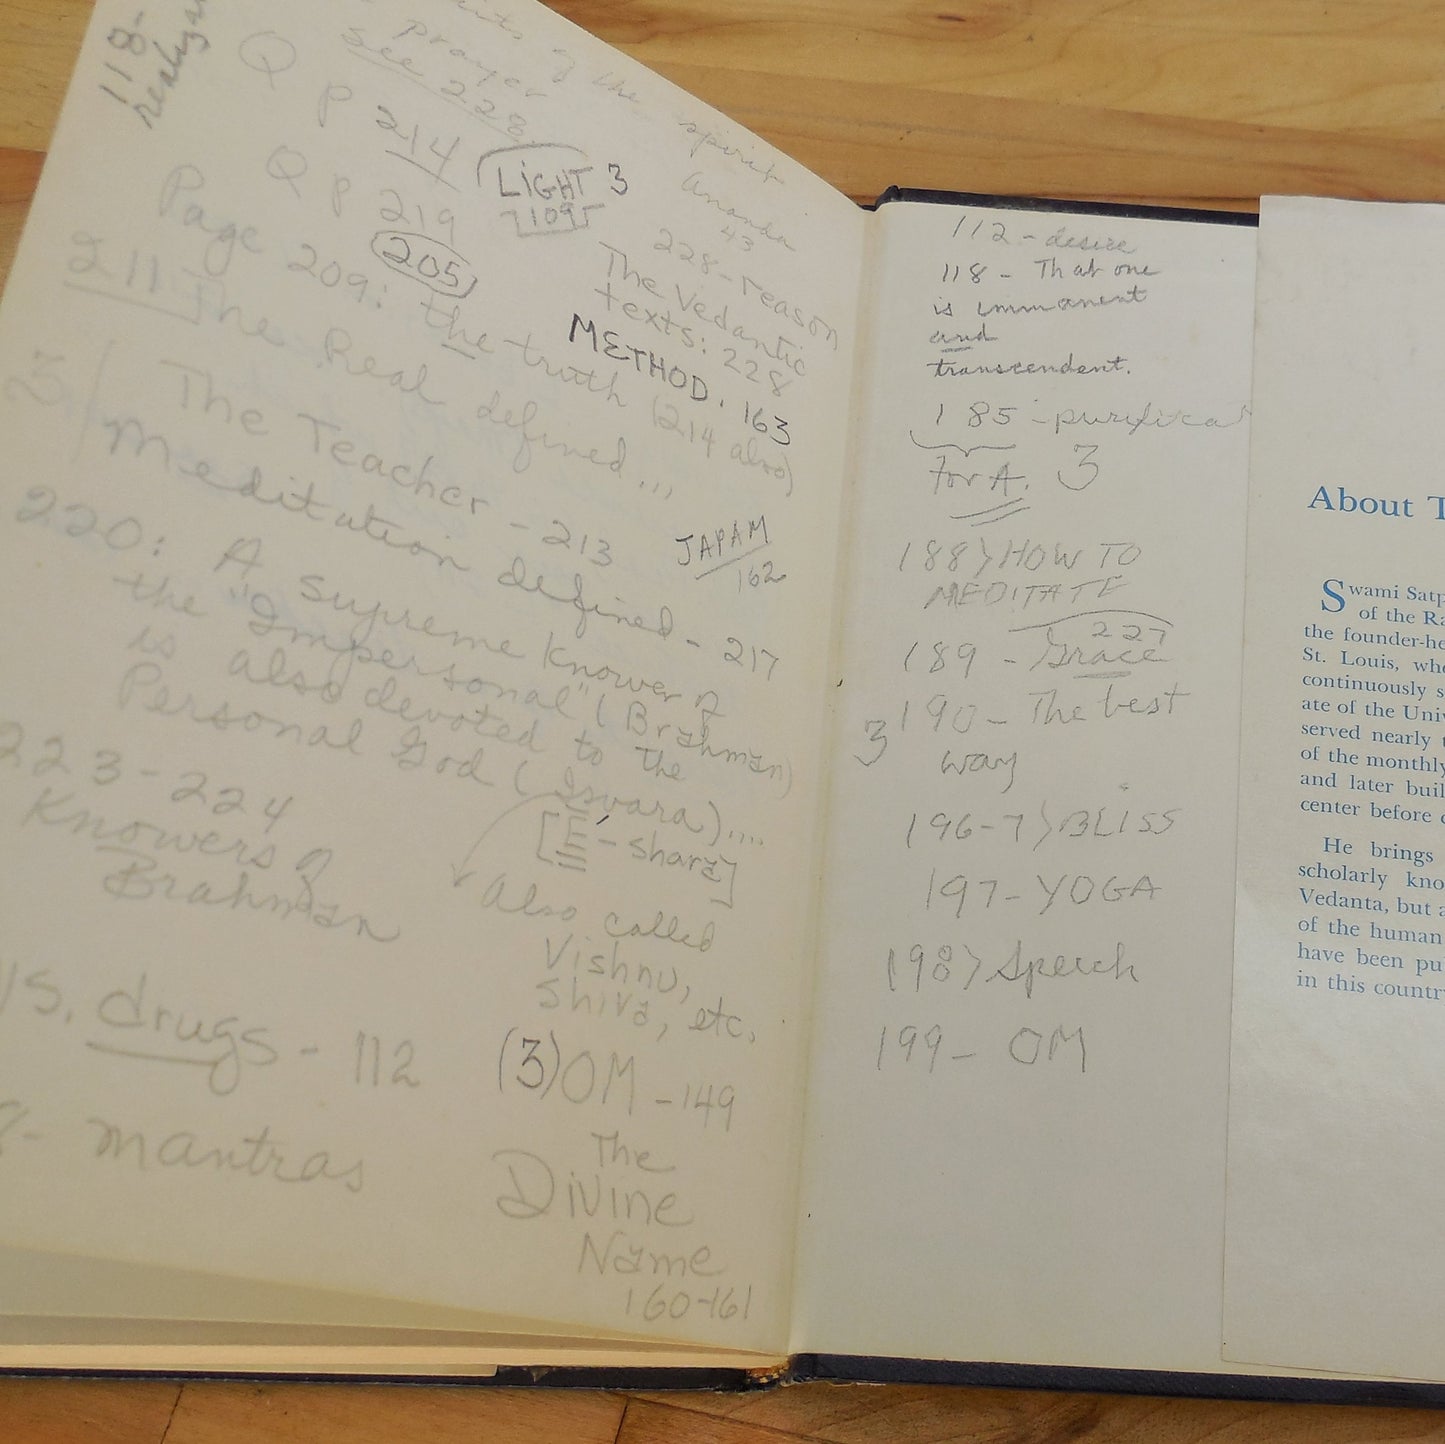 118-
of the spirit
prayer
see 228
Q P 214
LIGHT 3
109
Ananda
43
Q P 219
205
228-reason
The Vedantic
texts: 228
METHOD. 163
Page 209: the truth (214 also)
211 The Real defined...
3/ The Teacher - 213
Meditation defined - 217
JAPAM
162
220: A supreme knower of
the "Impersonal" (Brahman)
is also devoted to the
Personal God (Isvara)....
[E'-shara]
Also called
Vishnu,
Shiva, etc.
223-224
Knowers of
Brahman
VS. drugs - 112
(3) OM - 149
mantras
The
Divine
Name
160-161
112 - desire
118 - That one
is immanent
and
transcendent.
185 - purifica
For A. 3
188> HOW TO
MEDITATE
227
189 - Grace
3 190 - The best
way
196-7> BLISS
197- YOGA
198> Speech
199- OM
About T
Swami Satp
of the Ra
the founder-he
St. Louis, whe
continuously s
ate of the Univ
served nearly t
of the monthly
and later buil
center before
He brings
scholarly kno
Vedanta, but a
of the human
have been pu
in this countr